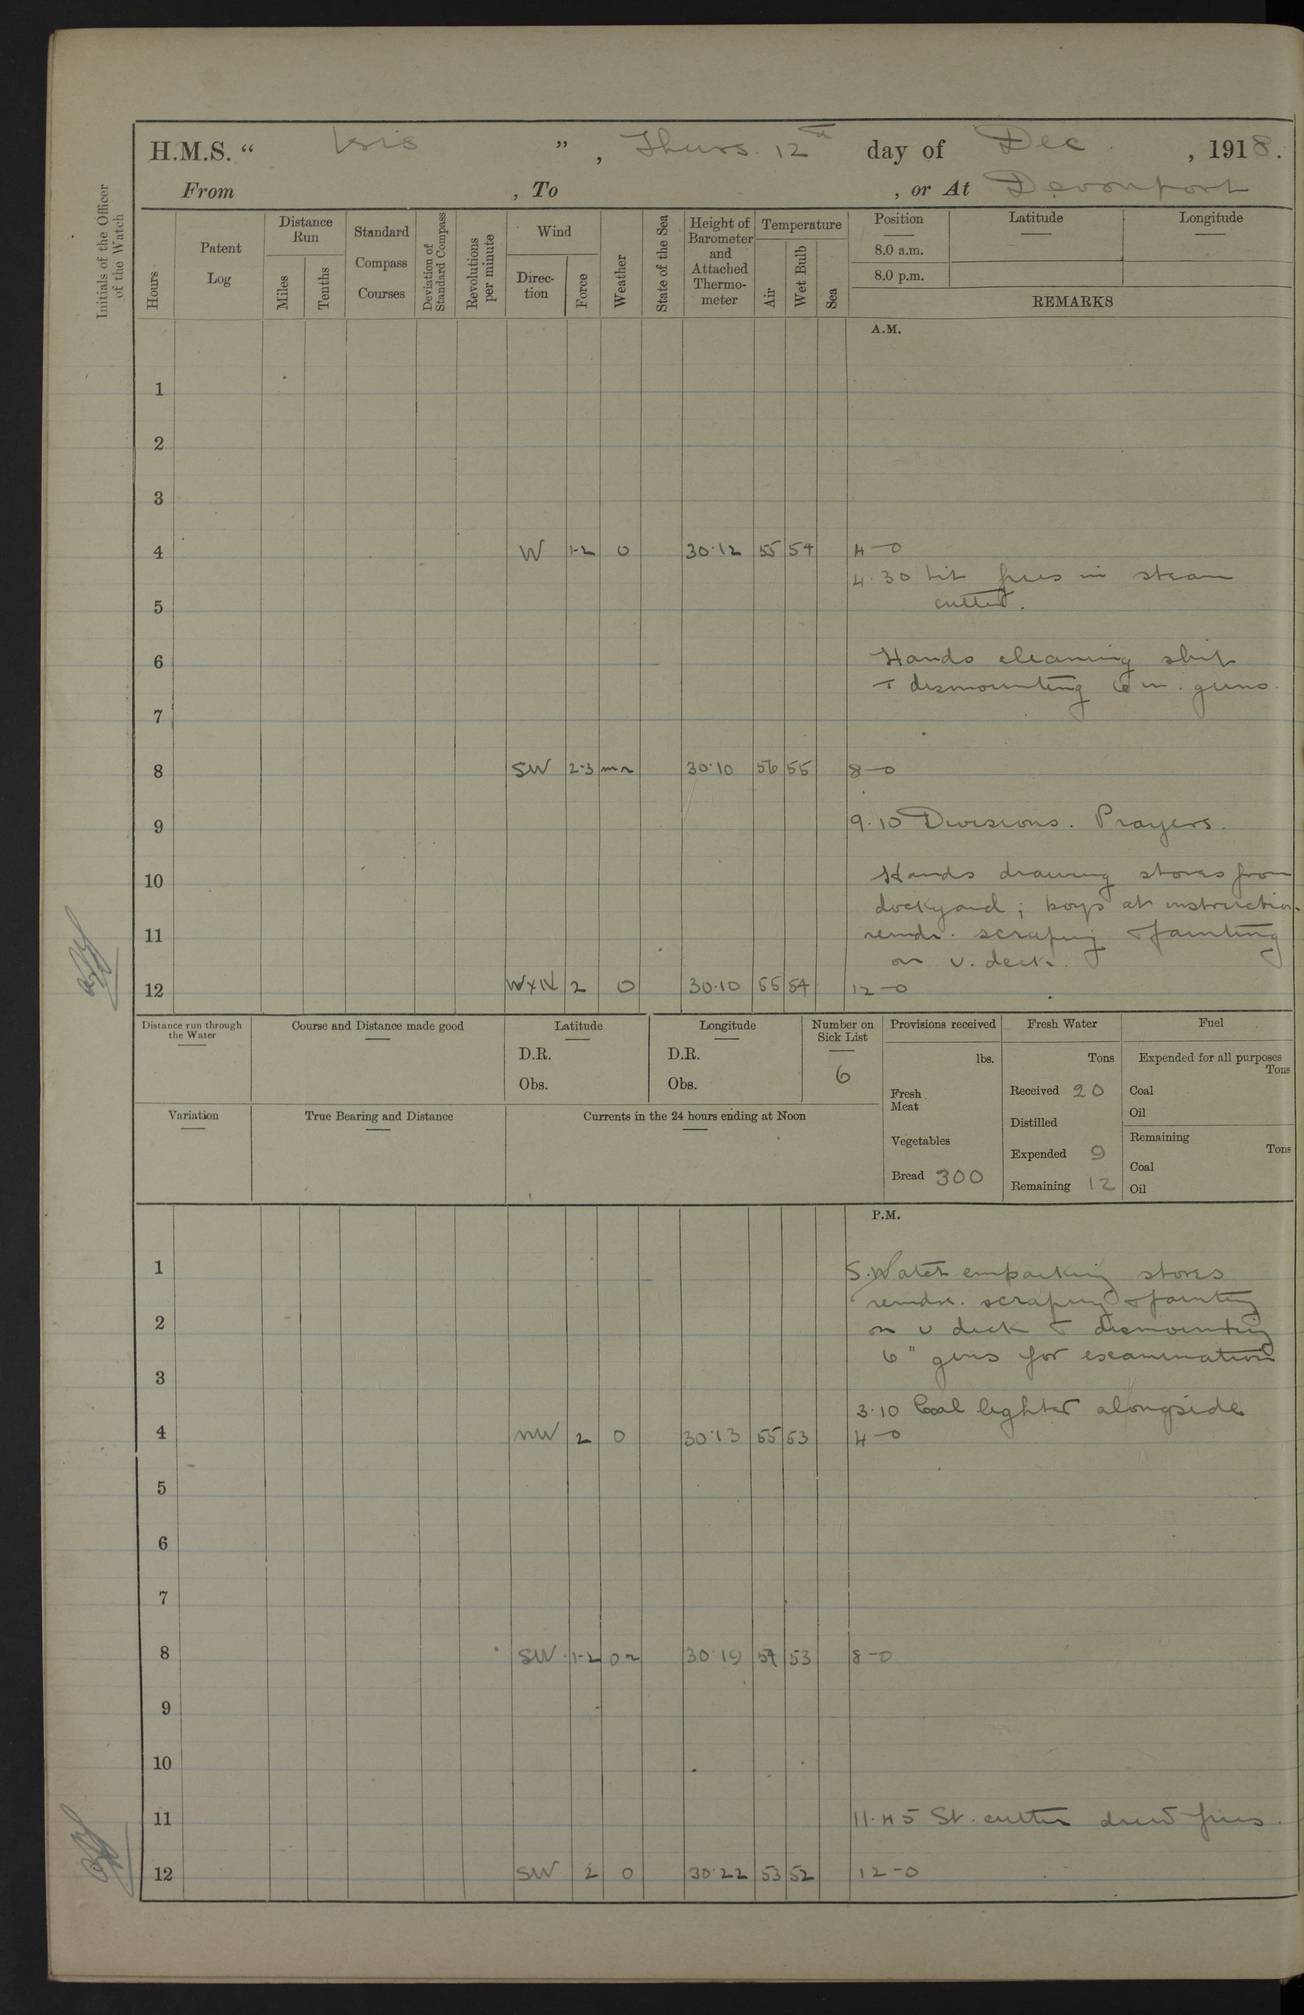 H.M.S. “ Isis ” , Thurs 12th day of Dec. , 1918.
From , To , or At Devonport
Initials of the Officer of the Watch
Hours
Patent Log
Distance Run
Miles
Tenths
Standard Compass Courses
Deviation of Standard Compass
Revolutions per minute
Wind
Direction
Force
Weather
State of the Sea
Height of Barometer and Attached Thermometer
Temperature
Air
Wet Bulb
Sea
Position
8.0 a.m.
8.0 p.m.
Latitude
Longitude
REMARKS
A.M.
1
2
3
4 W 1-2 0 30.12 55 54 4-0
4.30 Lit fires in steam
5 cutter.
6 Hands cleaning ship
+ dismounting 6 in. guns.
7
8 SW 2-3 mr 30.10 56 55 8-0
9 9.10 Divisions. Prayers.
10 Hands drawing stores from
dockyard; boys at instruction
11 remdr. scraping & painting
on u. deck.
12 WxN 2 0 30.10 55 54 12-0
Distance run through the Water
Course and Distance made good
Latitude
D.R.
Obs.
Longitude
D.R.
Obs.
Number on Sick List
6
Provisions received
lbs.
Fresh Meat
Vegetables
Bread 300
Fresh Water
Tons
Received 20
Distilled
Expended 9
Remaining 12
Fuel
Expended for all purposes
Tons
Coal
Oil
Remaining
Tons
Coal
Oil
Variation
True Bearing and Distance
Currents in the 24 hours ending at Noon
P.M.
1 S. Watch embarking stores
remdr. scraping & painting
2 on u deck & dismounting
6" guns for examination
3
3.10 Coal lighter alongside
4 NW 2 0 30.13 55 53 4-0
5
6
7
8 SW 1-2 or 30.19 54 53 8-0
9
10
11 11.45 St. cutter drew fires.
12 SW 2 0 30.22 53 52 12-0